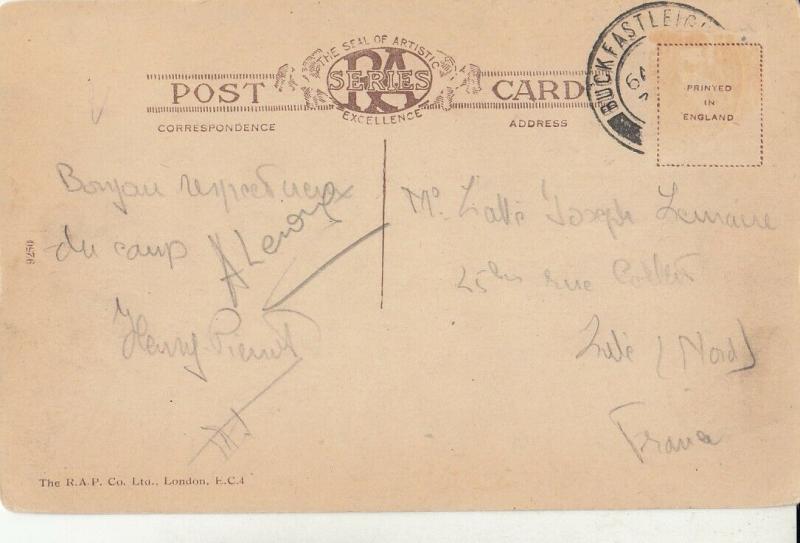 THE SEAL OF ARTISTIC
RA
SERIES
EXCELLENCE
POST CARD
CORRESPONDENCE
ADDRESS
BUCKFASTLEIGH
PRINTED
IN
ENGLAND
9250
Bonjour respectueux
du camp
Henry Pierrot
Mr. L'abbé Joseph Lemaire
25bis rue Colbert
Lille (Nord)
France
The R.A.P. Co. Ltd., London, E.C.4